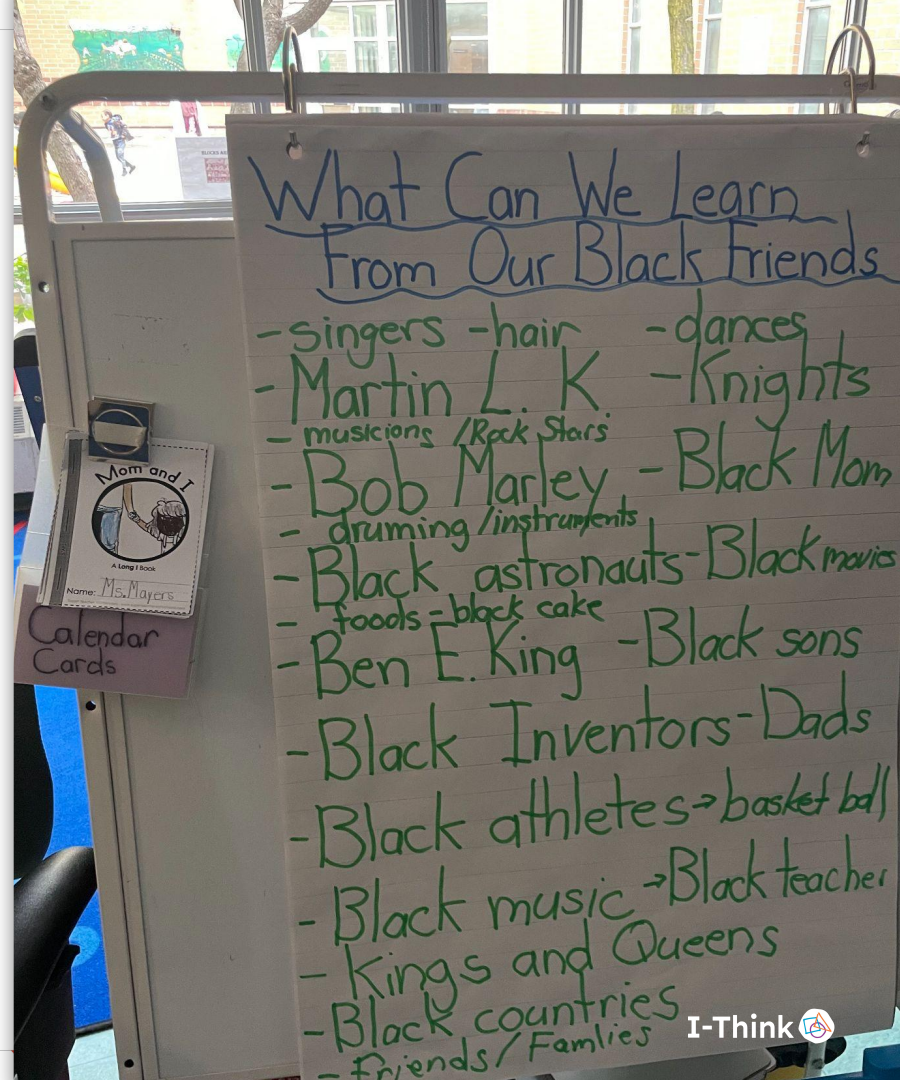 What Can We Learn
From Our Black Friends
-singers -hair -dances
-Martin L. K -Knights
- musicions /Rock Stars
-Bob Marley -Black Mom
- druming /instruments
-Black astronauts-Black movies
- foods-black cake
-Ben E. King -Black sons
-Black Inventors-Dads
-Black athletes→basket ball
-Black music →Black teacher
-Kings and Queens
-Black countries
-Friends/Famlies
Mom and I
A Long I Book
Name: Ms. Mayers
Calendar
Cards
I-Think